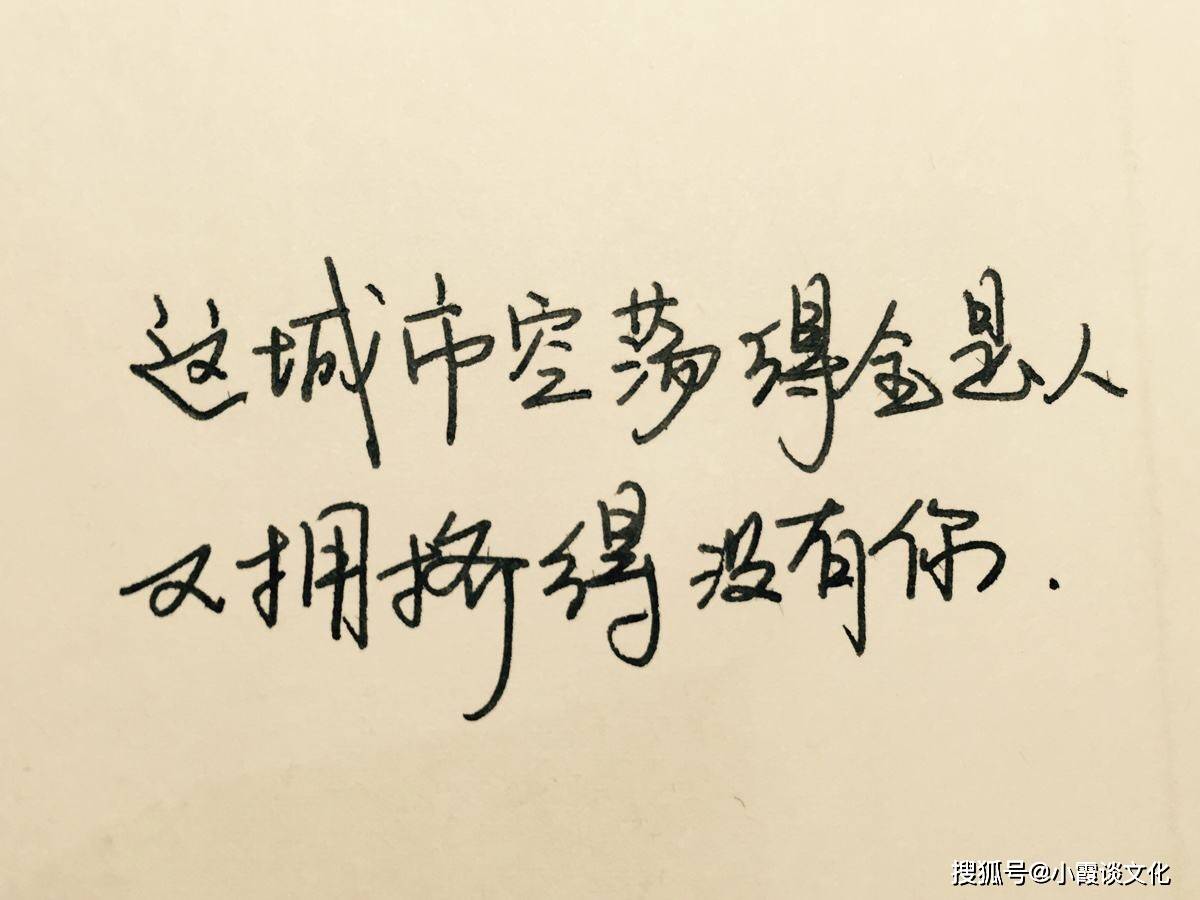 这城市空荡得全是人
又拥挤得没有你.
搜狐号@小霞谈文化